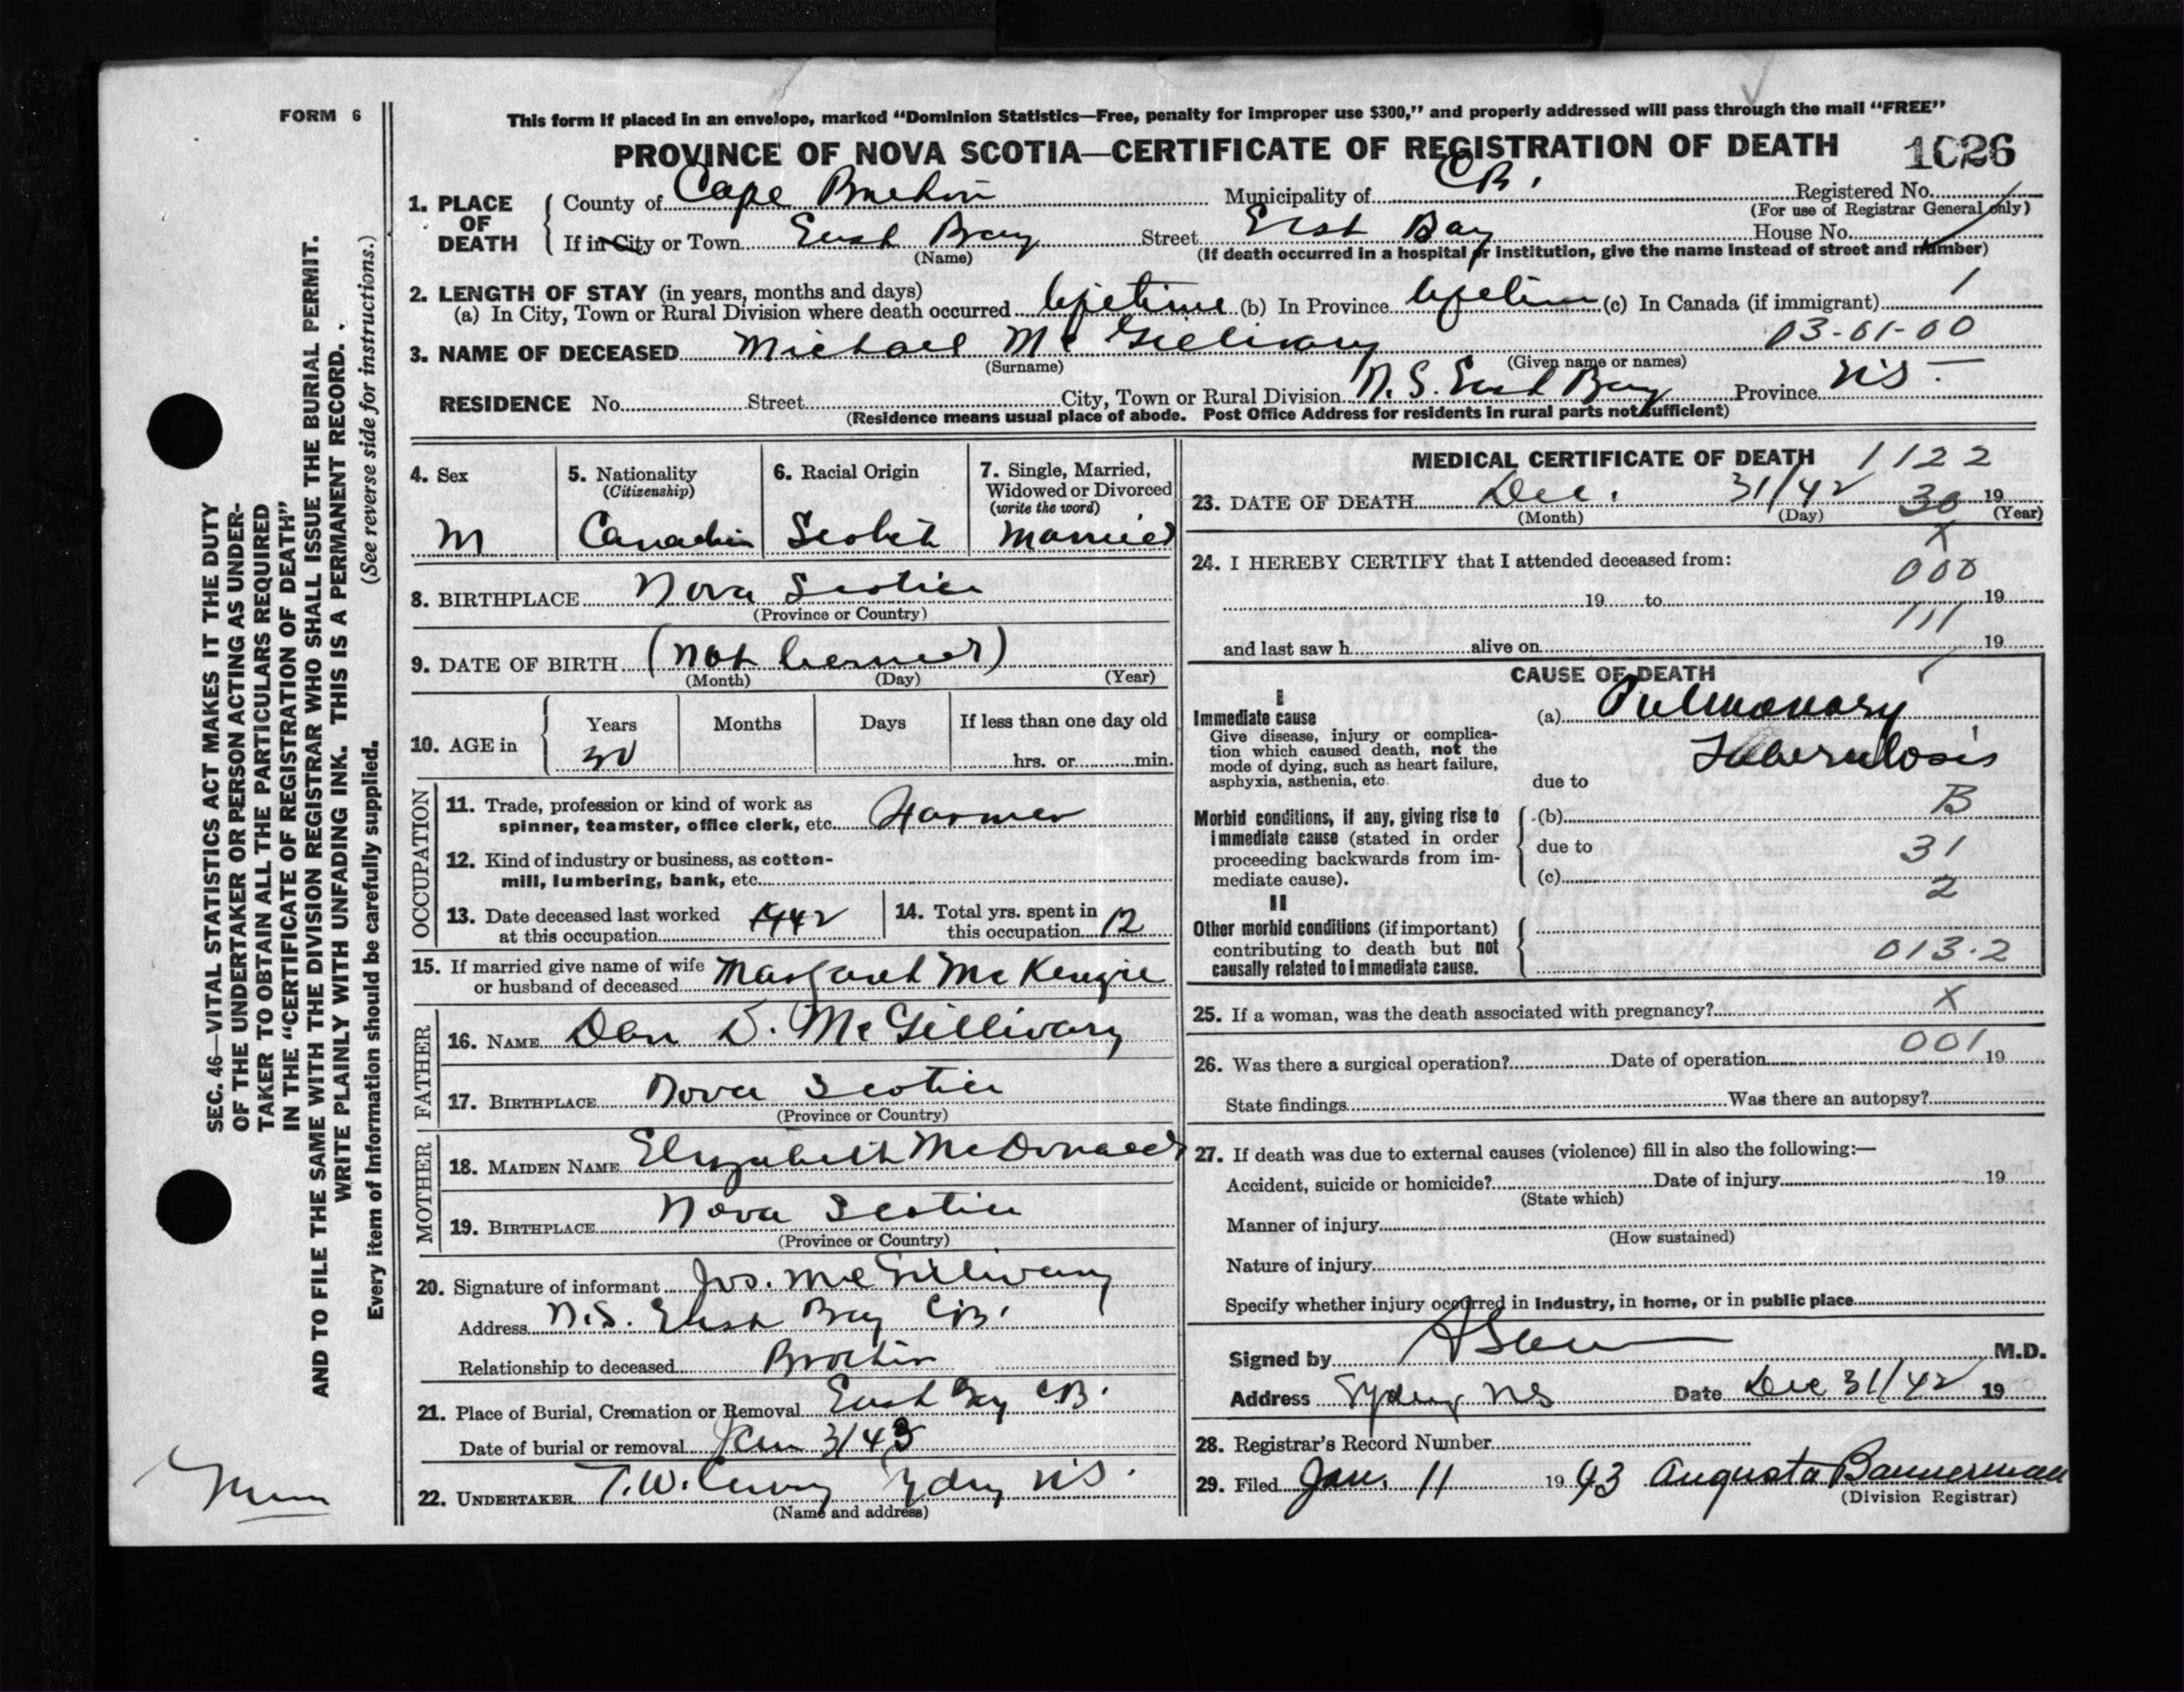 FORM 6
This form if placed in an envelope, marked "Dominion Statistics—Free, penalty for improper use $300," and properly addressed will pass through the mail "FREE"
PROVINCE OF NOVA SCOTIA—CERTIFICATE OF REGISTRATION OF DEATH 1026
1. PLACE OF DEATH
County of Cape Breton Municipality of C.B. Registered No.
(For use of Registrar General only)
If in City or Town East Bay Street East Bay House No.
(Name) (If death occurred in a hospital or institution, give the name instead of street and number)
2. LENGTH OF STAY (in years, months and days)
(a) In City, Town or Rural Division where death occurred lifetime (b) In Province lifetime (c) In Canada (if immigrant) /
3. NAME OF DECEASED Michael Mc Gillivary 03-01-00
(Surname) (Given name or names)
RESIDENCE No. Street City, Town or Rural Division N.S. East Bay Province N.S.
(Residence means usual place of abode. Post Office Address for residents in rural parts not sufficient)
4. Sex M
5. Nationality (Citizenship) Canadian
6. Racial Origin Scotch
7. Single, Married, Widowed or Divorced (write the word) Married
8. BIRTHPLACE Nova Scotia
(Province or Country)
9. DATE OF BIRTH
(Month) (Day) (Year)
10. AGE in Years 30 Months Days If less than one day old
hrs. or min.
OCCUPATION
11. Trade, profession or kind of work as
spinner, teamster, office clerk, etc. Farmer
12. Kind of industry or business, as cotton-
mill, lumbering, bank, etc.
13. Date deceased last worked
at this occupation 1942
14. Total yrs. spent in
this occupation 12
15. If married give name of wife
or husband of deceased Margaret McKenzie
FATHER
16. NAME Dan D. McGillivary
17. BIRTHPLACE Nova Scotia
(Province or Country)
MOTHER
18. MAIDEN NAME Elizabeth McDonald
19. BIRTHPLACE Nova Scotia
(Province or Country)
20. Signature of informant Jos. McGillivary
Address N.S. East Bay C.B.
Relationship to deceased Brother
21. Place of Burial, Cremation or Removal East Bay C.B.
Date of burial or removal Jan 3/43
22. UNDERTAKER T.W. Sydney N.S.
(Name and address)
MEDICAL CERTIFICATE OF DEATH 1122
23. DATE OF DEATH Dec. 31/42 30 19
(Month) (Day) (Year)
X
24. I HEREBY CERTIFY that I attended deceased from:
000
19 to 19
111
and last saw h alive on 19
CAUSE OF DEATH
I
Immediate cause
Give disease, injury or complica-
tion which caused death, not the
mode of dying, such as heart failure,
asphyxia, asthenia, etc.
(a) Pulmonary
Tuberculosis
due to
Morbid conditions, if any, giving rise to
immediate cause (stated in order
proceeding backwards from im-
mediate cause).
(b) B
due to 31
(c) 2
II
Other morbid conditions (if important)
contributing to death but not
causally related to immediate cause.
013.2
25. If a woman, was the death associated with pregnancy? X
001
26. Was there a surgical operation? Date of operation 19
State findings Was there an autopsy?
27. If death was due to external causes (violence) fill in also the following:—
Accident, suicide or homicide? Date of injury 19
(State which)
Manner of injury
(How sustained)
Nature of injury
Specify whether injury occurred in industry, in home, or in public place
Signed by M.D.
Address Sydney NS Date Dec 31/42 19
28. Registrar's Record Number
29. Filed Jan. 11 1943 Augusta Bannerman
(Division Registrar)
SEC. 46—VITAL STATISTICS ACT MAKES IT THE DUTY
OF THE UNDERTAKER OR PERSON ACTING AS UNDER-
TAKER TO OBTAIN ALL THE PARTICULARS REQUIRED
IN THE "CERTIFICATE OF REGISTRATION OF DEATH"
AND TO FILE THE SAME WITH THE DIVISION REGISTRAR WHO SHALL ISSUE THE BURIAL PERMIT.
WRITE PLAINLY WITH UNFADING INK. THIS IS A PERMANENT RECORD.
(See reverse side for instructions.)
Every item of Information should be carefully supplied.